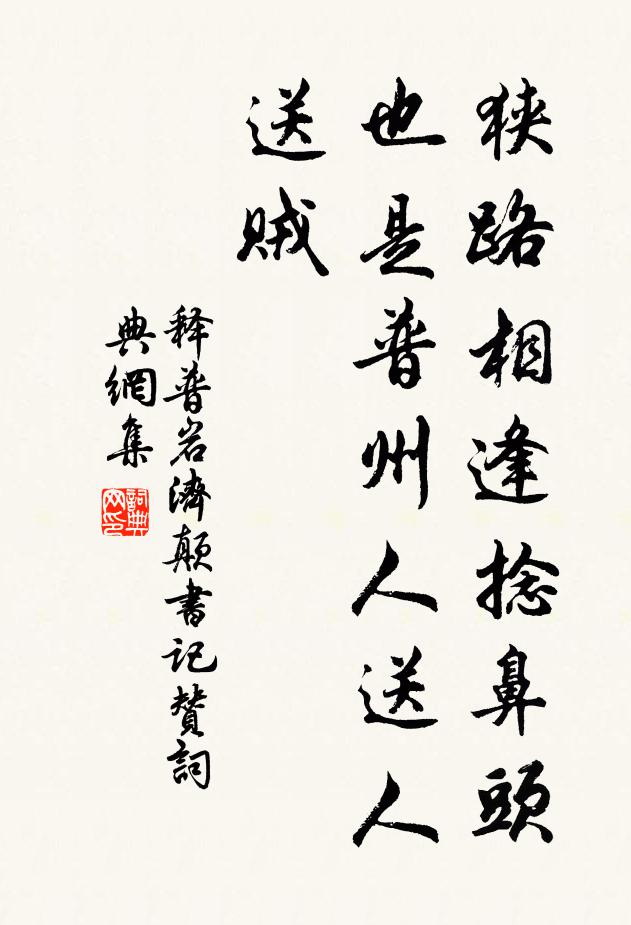 狹路相逢捻鼻頭
也是普州人送人
送賊
释普岩濟顛書記賛詞
典網集
詞典网印